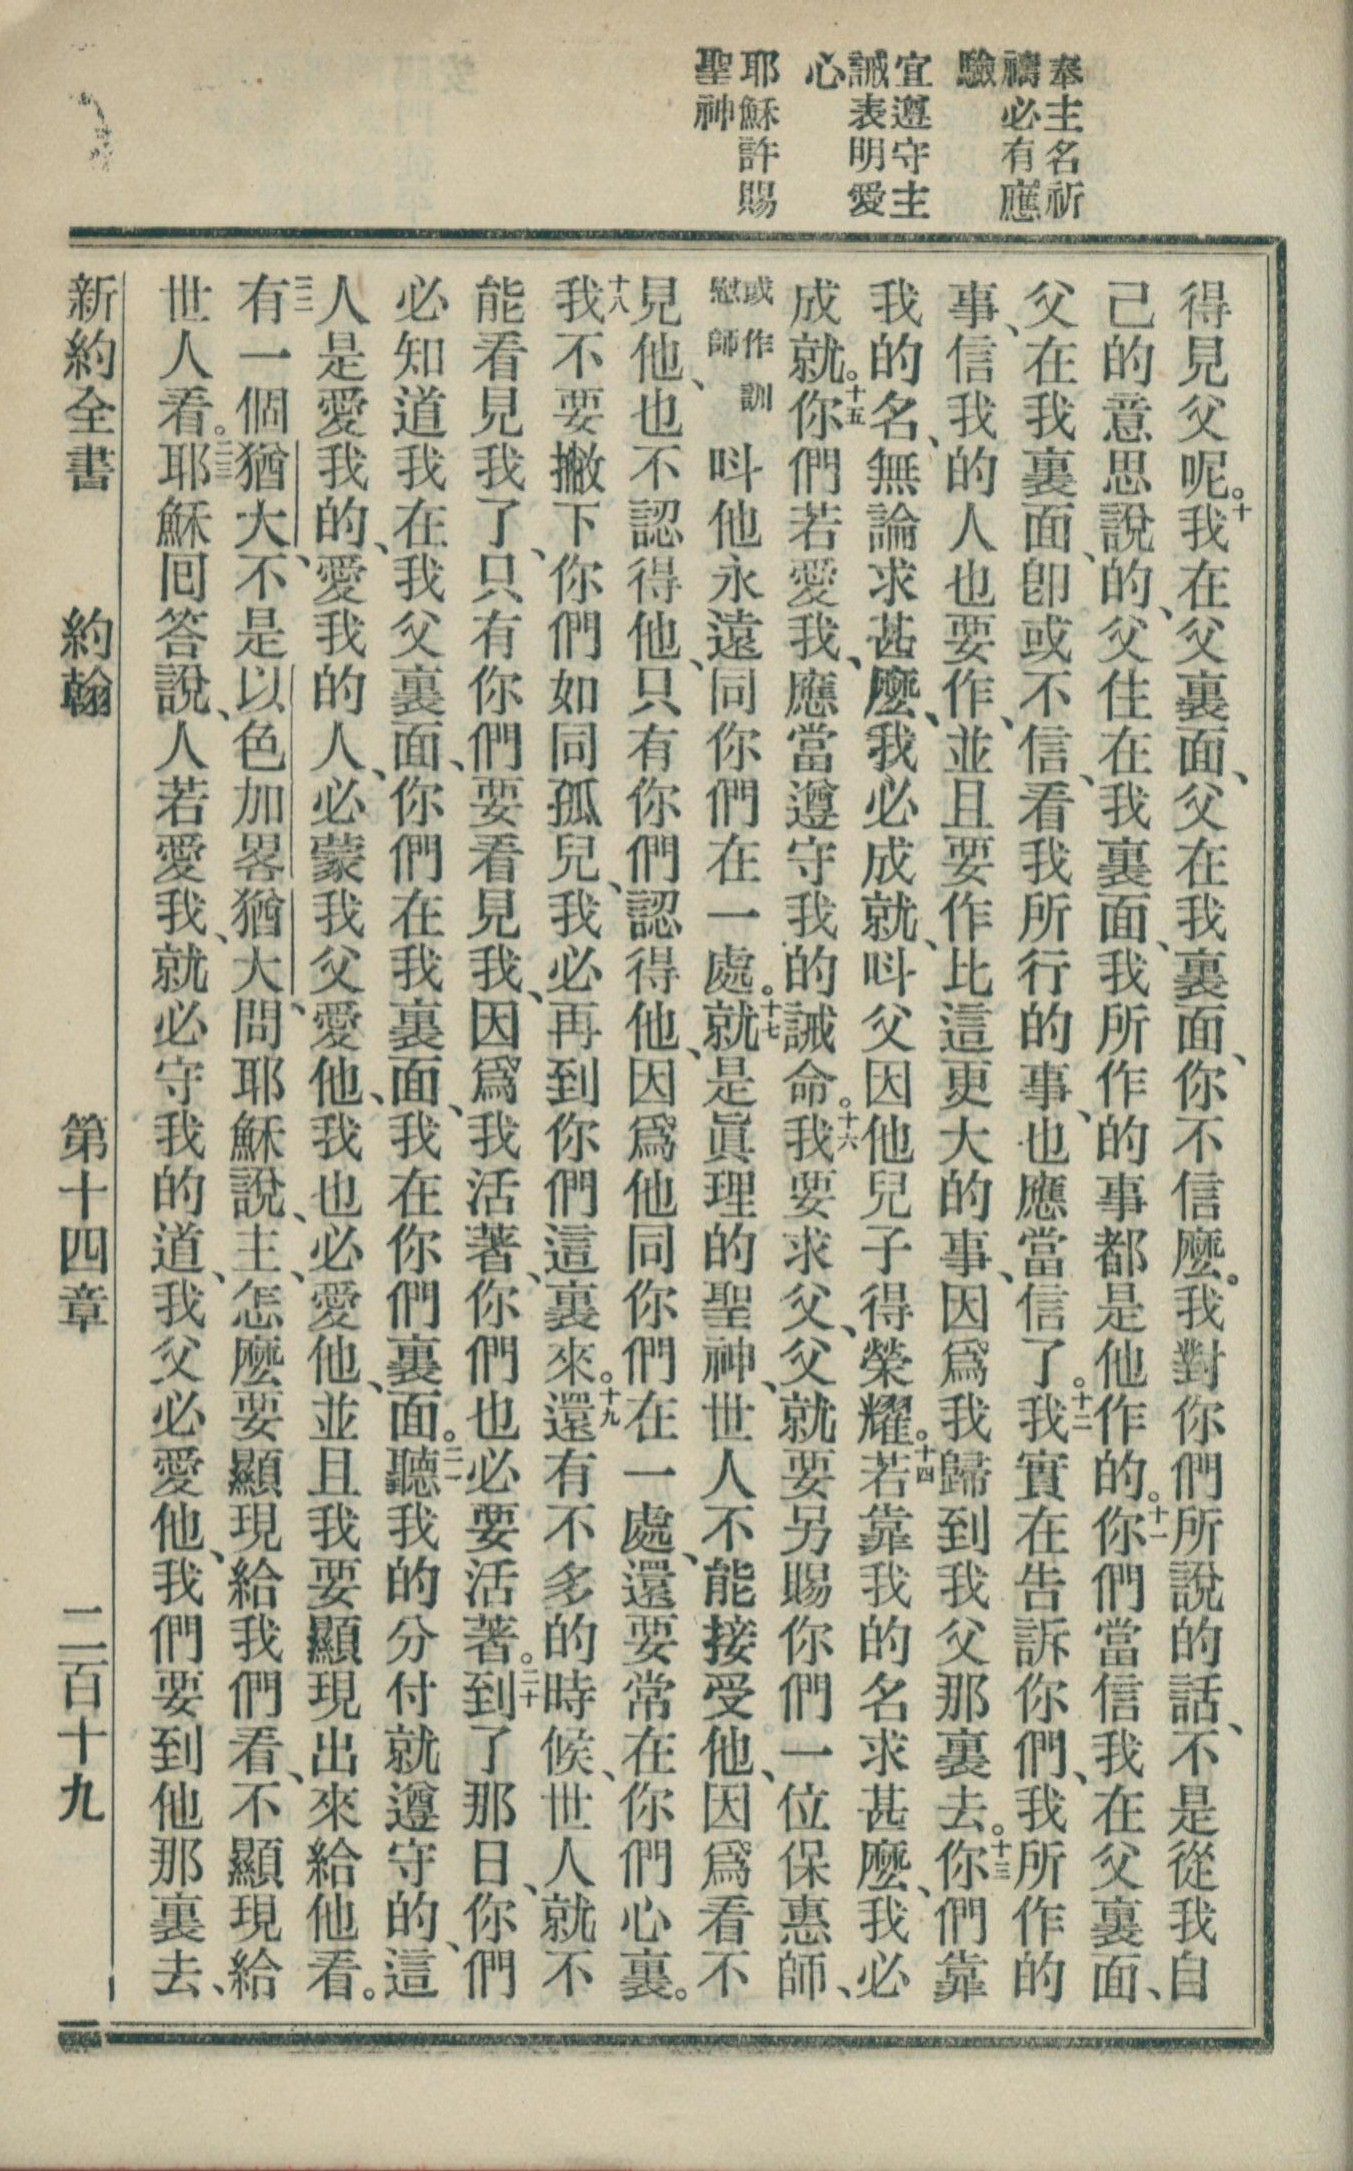 奉主名祈
禱必有應
驗
宜遵守主
誡表明愛
心
耶穌許賜
聖神
得見父呢。十我在父裏面、父在我裏面、你不信麼。我對你們所說的話、不是從我自
己的意思說的、父住在我裏面、我所作的事都是他作的。十一你們當信我在父裏面、
父在我裏面、卽或不信、看我所行的事、也應當信了。十二我實在告訴你們、我所作的
事、信我的人也要作、並且要作比這更大的事、因爲我歸到我父那裏去。十三你們靠
我的名、無論求甚麼、我必成就、呌父因他兒子得榮耀。十四若靠我的名求甚麼、我必
成就。十五你們若愛我、應當遵守我的誡命。十六我要求父、父就要另賜你們一位保惠師、
或作訓慰師 呌他永遠同你們在一處。十七就是眞理的聖神、世人不能接受他、因爲看不
見他、也不認得他、只有你們認得他、因爲他同你們在一處、還要常在你們心裏。
十八我不要撇下你們如同孤兒、我必再到你們這裏來。十九還有不多的時候、世人就不
能看見我了、只有你們要看見我、因爲我活著、你們也必要活著。二十到了那日、你們
必知道我在我父裏面、你們在我裏面、我在你們裏面。二一聽我的分付就遵守的、這
人是愛我的、愛我的人、必蒙我父愛他、我也必愛他、並且我要顯現出來給他看。
二二有一個猶大、不是以色加畧猶大、問耶穌說、主、怎麼要顯現給我們看、不顯現給
世人看。二三耶穌回答說、人若愛我、就必守我的道、我父必愛他、我們要到他那裏去、
新約全書 約翰 第十四章 二百十九